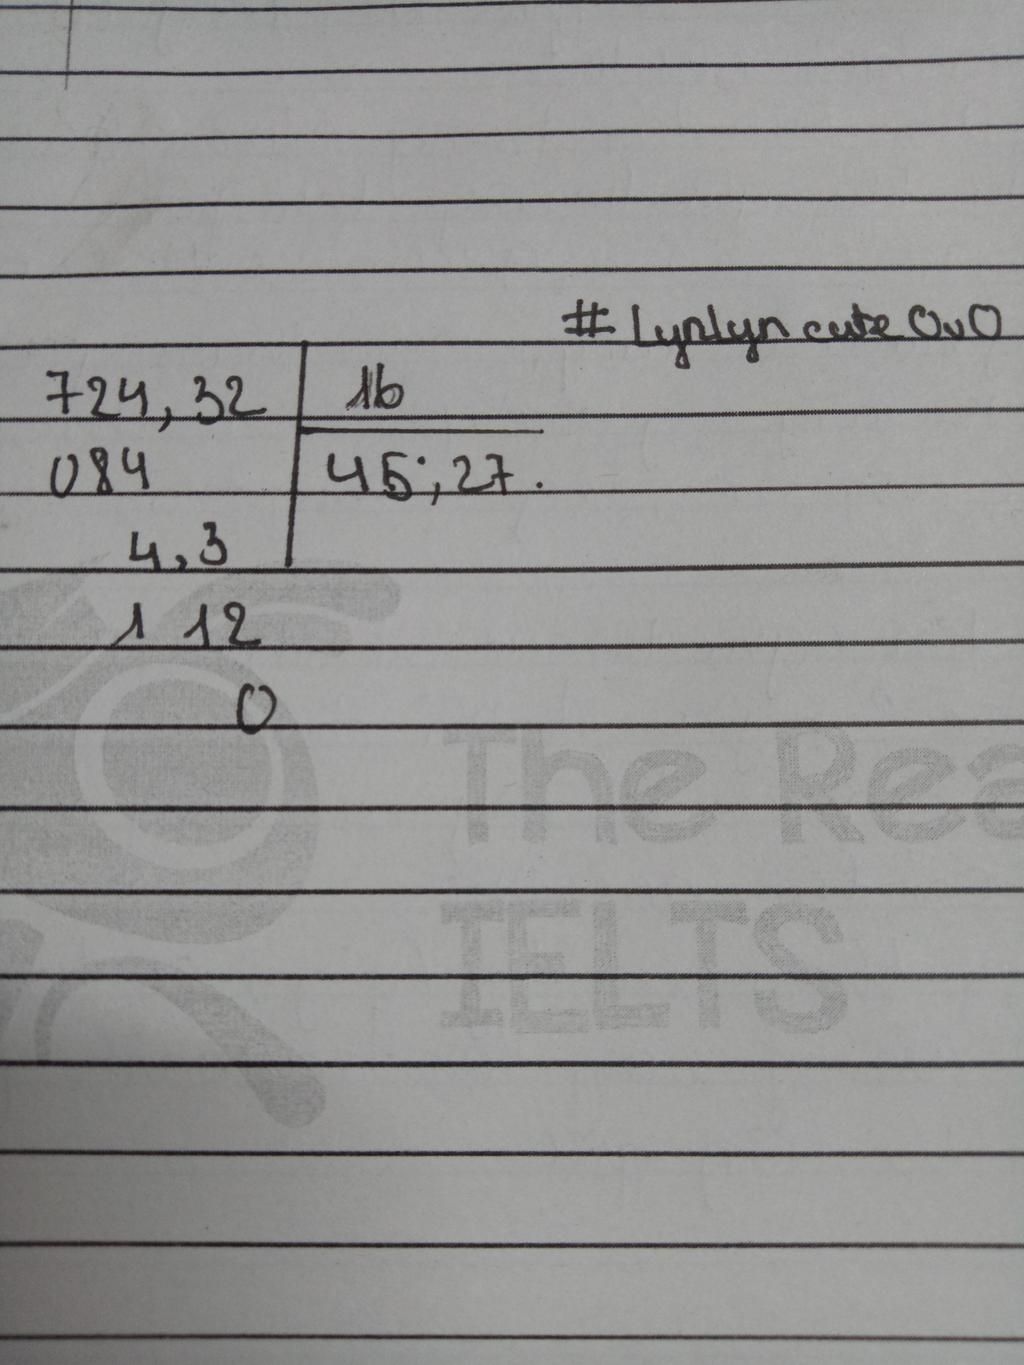 # Lynlyn cute OvO
724,32 16
084 45,27.
4,3
1 12
0
The Rea
IELTS